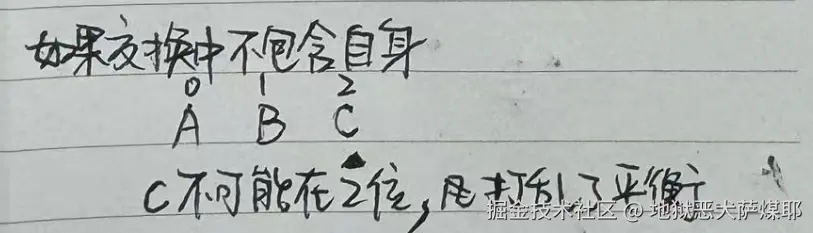 如果交换中不包含自身
0 1 2
A B C
C不可能在2位,打乱了平衡
掘金技术社区 @ 地狱恶犬萨煤耶